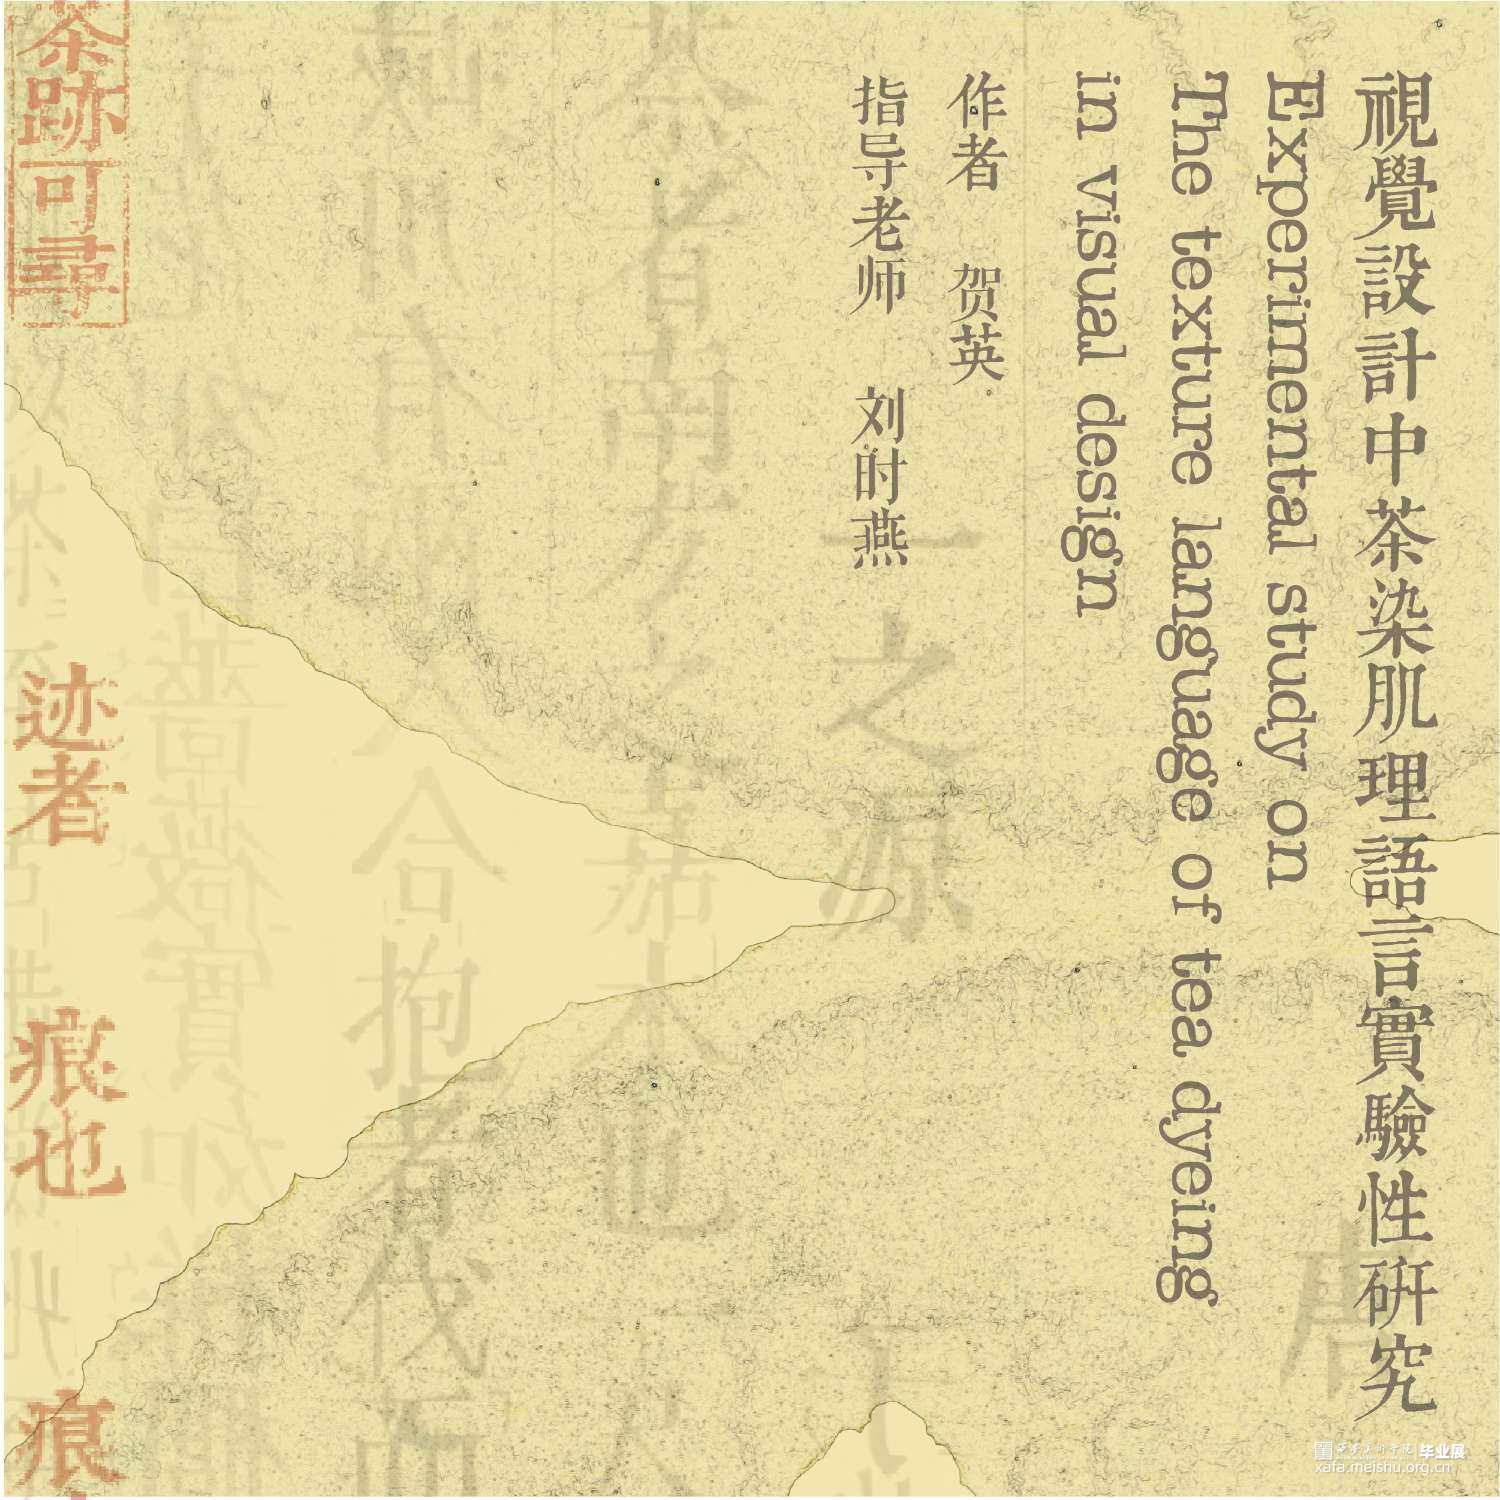 視覺設計中茶染肌理語言實驗性研究
Experimental study on
The texture language of tea dyeing
in visual design
作者 贺英
指导老师 刘时燕
唐
一之源
茶者南方之嘉木也
合抱者伐而
茶跡可尋
迹者 痕也 痕
西安美术学院 毕业展
xafa.meishu.org.cn